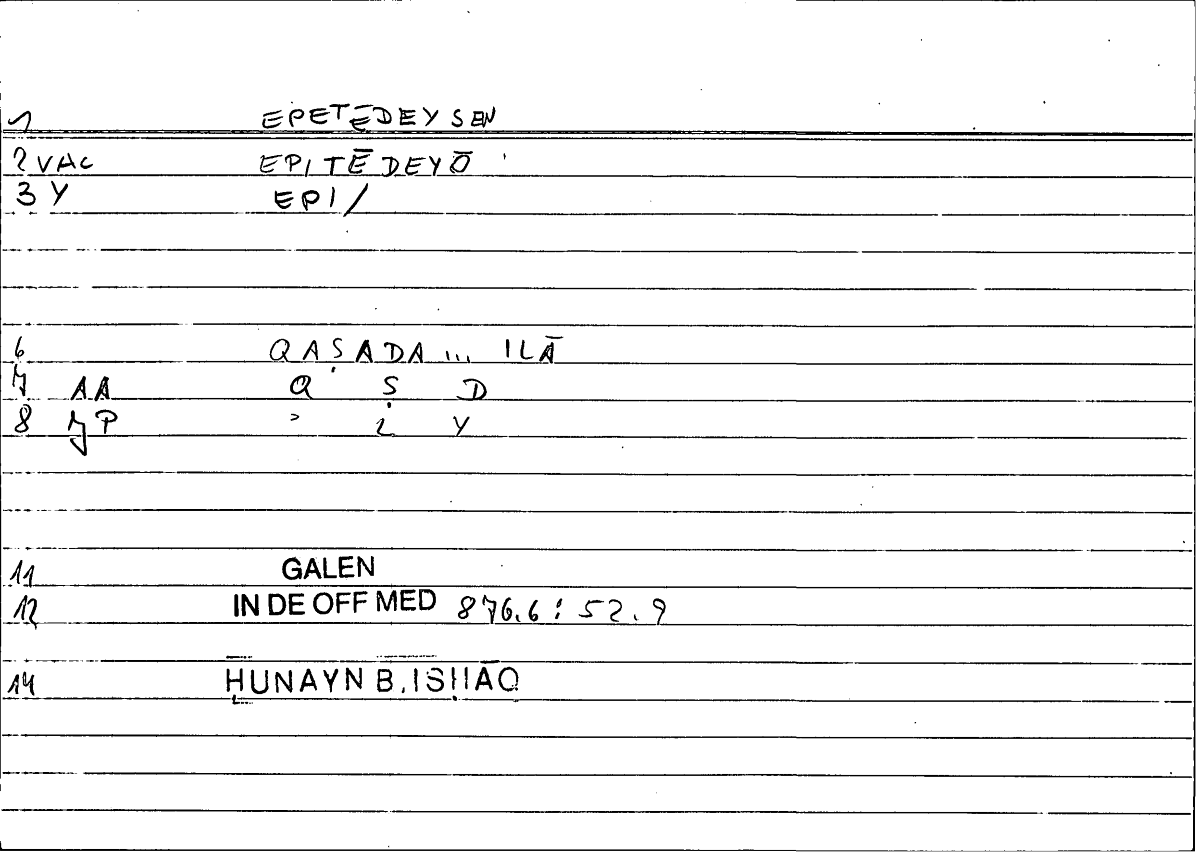 1 EPETĒDEYSEN
2 VAC EPITĒDEYŌ
3 Y EPI/
6 QAṢADA ... ILĀ
7 AA Q Ṣ D
8 JP > i Y
11 GALEN
12 IN DE OFF MED 876.6 : 52.9
14 ḤUNAYN B. ISḤĀQ